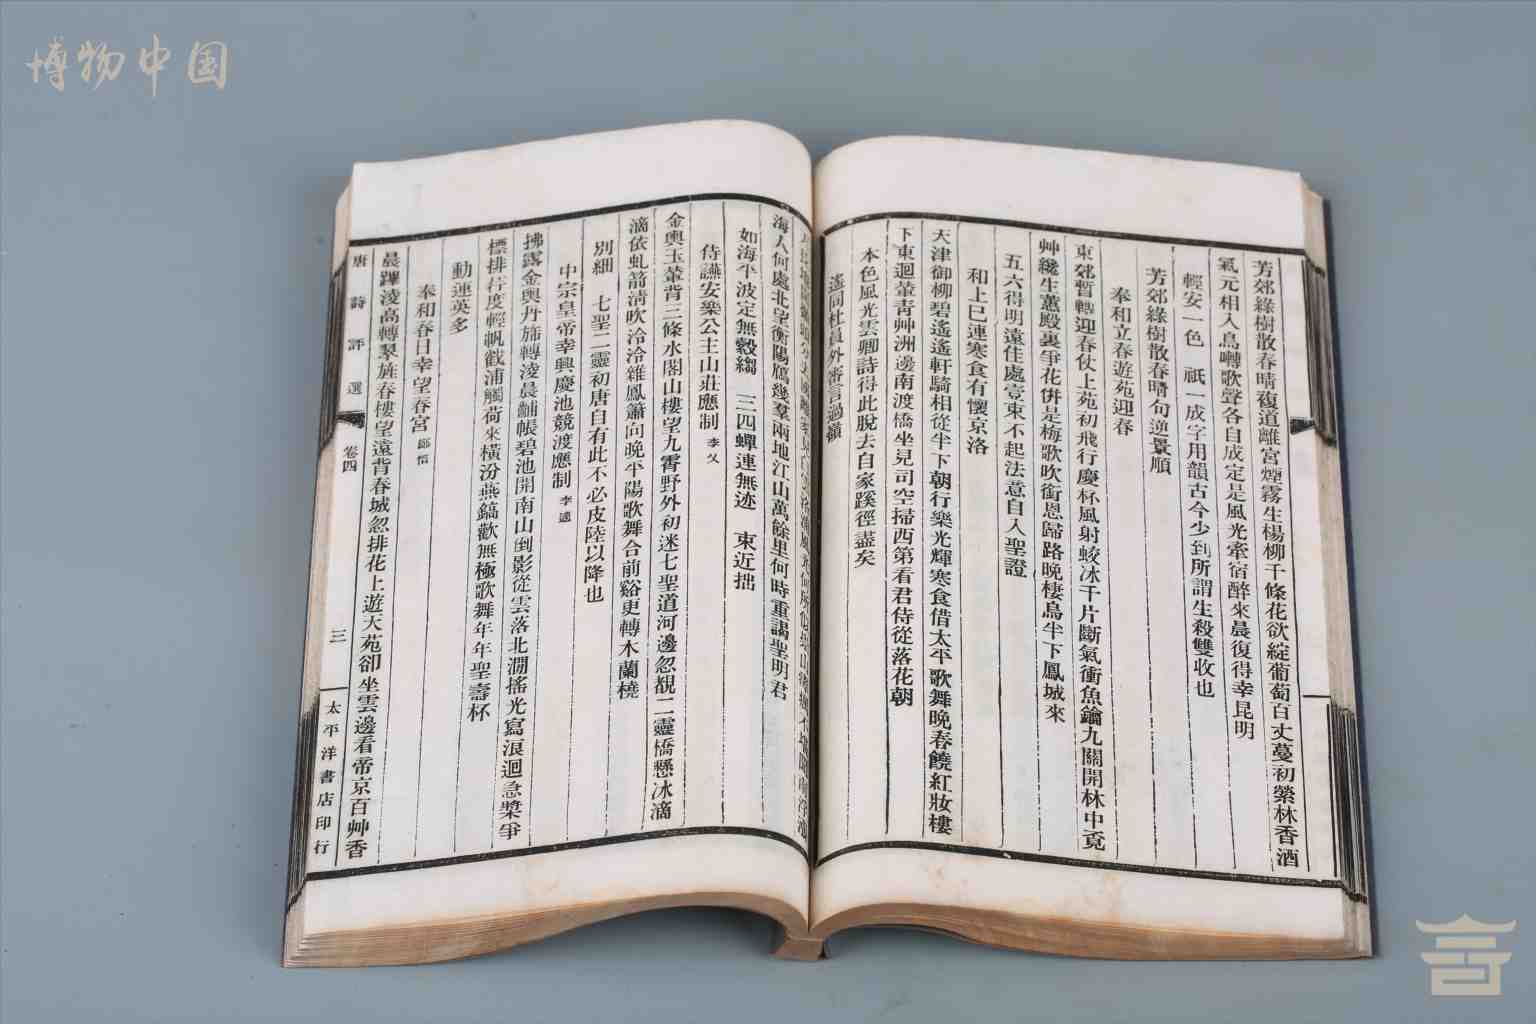 博物中国
芳郊綠樹散春晴複道離宮煙霧生楊柳千條花欲綻葡萄百丈蔓初縈林香酒
氣元相入鳥囀歌聲各自成定是風光牽宿醉來晨復得幸昆明
輕安一色　祇一成字用韻古今少到所謂生殺雙收也
芳郊綠樹散春晴句逆景順
奉和立春遊苑迎春
東郊暫轉迎春仗上苑初飛行慶杯風射蛟冰千片斷氣衝魚鑰九關開林中覓
艸纔生蕙殿裏爭花併是梅歌吹銜恩歸路晚棲鳥半下鳳城來
五六得明遠佳處壹東不起法意自入聖證
和上巳連寒食有懷京洛
天津御柳碧遙遙軒騎相從半下朝行樂光輝寒食借太平歌舞晚春饒紅妝樓
下東迴輦青艸洲邊南渡橋坐見司空掃西第看君侍從落花朝
本色風光雲卿詩得此脫去自家蹊徑盡矣
遙同杜員外審言過嶺
海人何處北望衡陽鴈幾羣兩地江山萬餘里何時重謁聖明君
如海平波定無縠縐　三四蟬連無迹　東近拙
侍讌安樂公主山莊應制 李乂
金輿玉輦背三條水閣山樓望九霄野外初迷七聖道河邊忽覩二靈橋懸冰滴
滴依虬箭清吹泠泠雜鳳簫向晚平陽歌舞合前谿更轉木蘭橈
別細　七聖二靈初唐自有此不必皮陸以降也
中宗皇帝幸興慶池競渡應制 李適
拂露金輿丹旆轉淩晨黼帳碧池開南山倒影從雲落北澗搖光寫浪迴急槳爭
標排荇度輕帆截浦觸荷來橫汾燕鎬歡無極歌舞年年聖壽杯
動連英多
奉和春日幸望春宮 鄭愔
晨蹕淩高轉翠旌春樓望遠背春城忽排花上遊天苑卻坐雲邊看帝京百艸香
唐詩評選　卷四　三　太平洋書店印行